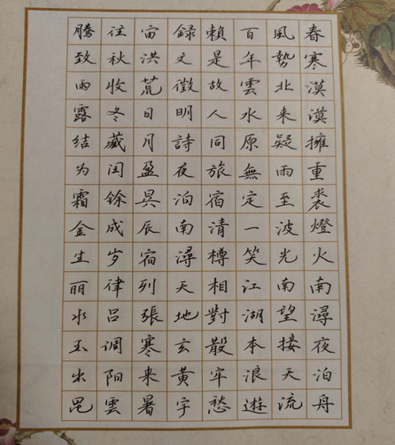 春寒漠漠擁重裘燈火南潯夜泊舟
風勢北来疑雨至波光南望接天流
百年雲水原無定一笑江湖本浪遊
賴是故人同旅宿清樽相對散牢愁
録文徵明詩夜泊南潯天地玄黄宇
宙洪荒日月盈昃辰宿列張寒来暑
往秋收冬藏闰馀成岁律吕调阳雲
騰致雨露结为霜金生丽水玉出昆